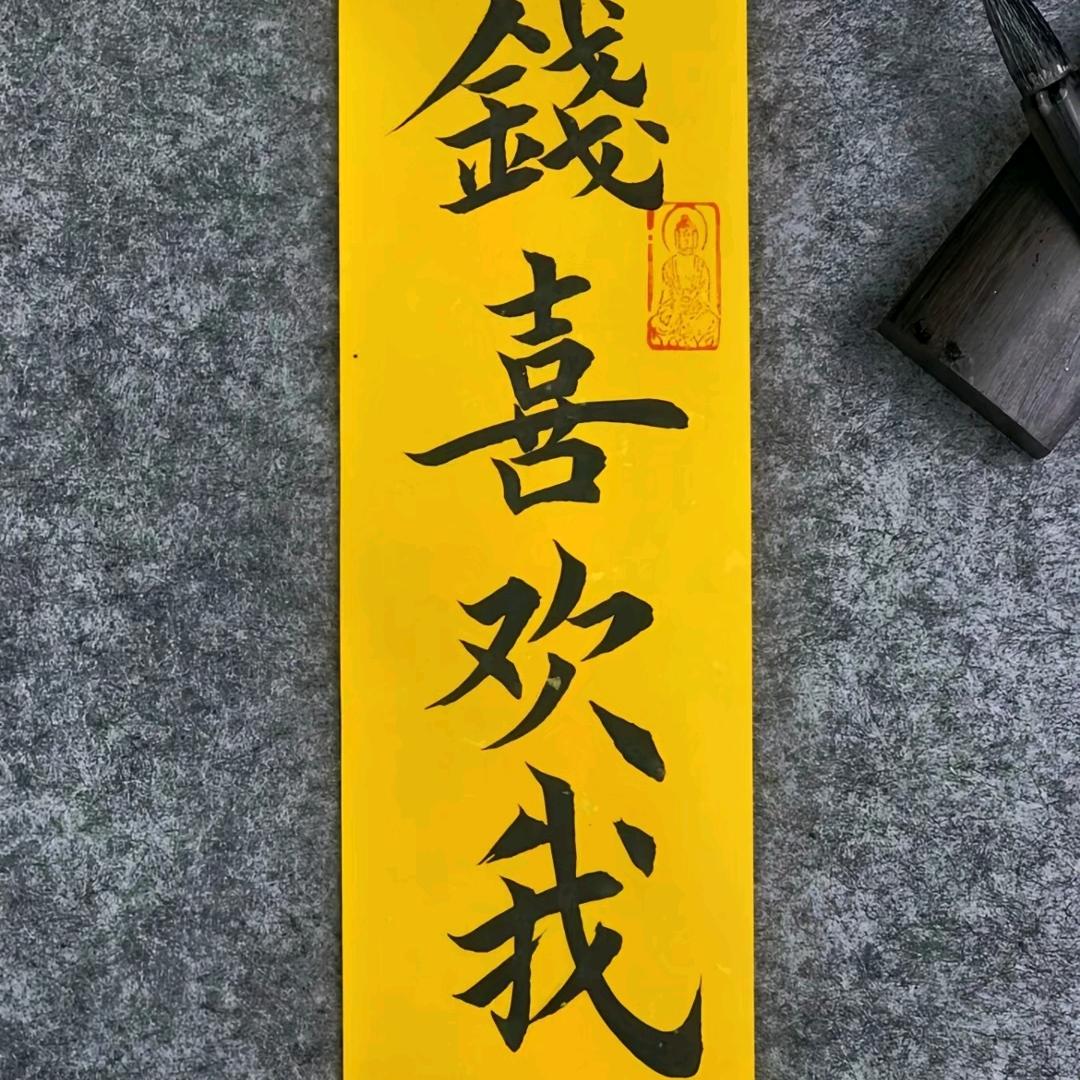 錢喜欢我